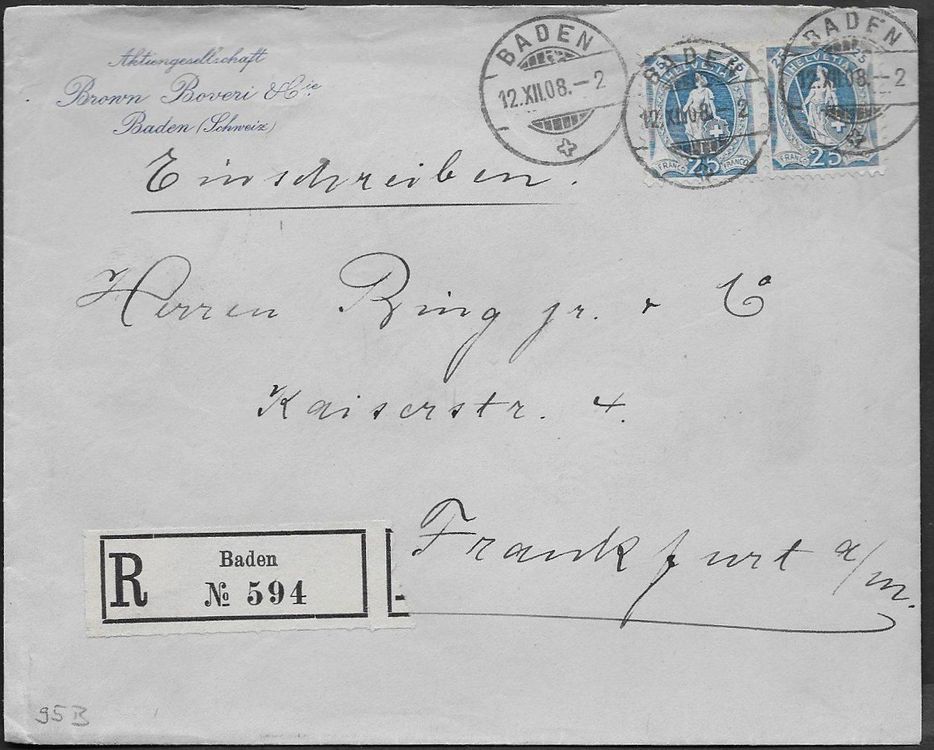 Aktiengesellschaft
Brown Boveri & Cie
Baden (Schweiz)
BADEN
12.XII.08.-2
BADEN
12.XII.08.-2
BADEN
12.XII.08.-2
25 HELVETIA
FRANCO 25 FRANCO
25 HELVETIA
FRANCO 25
Einschreiben.
Herren Ring jr. & Co
Kaiserstr. 4.
Frankfurt a/m.
R Baden
№ 594
95B